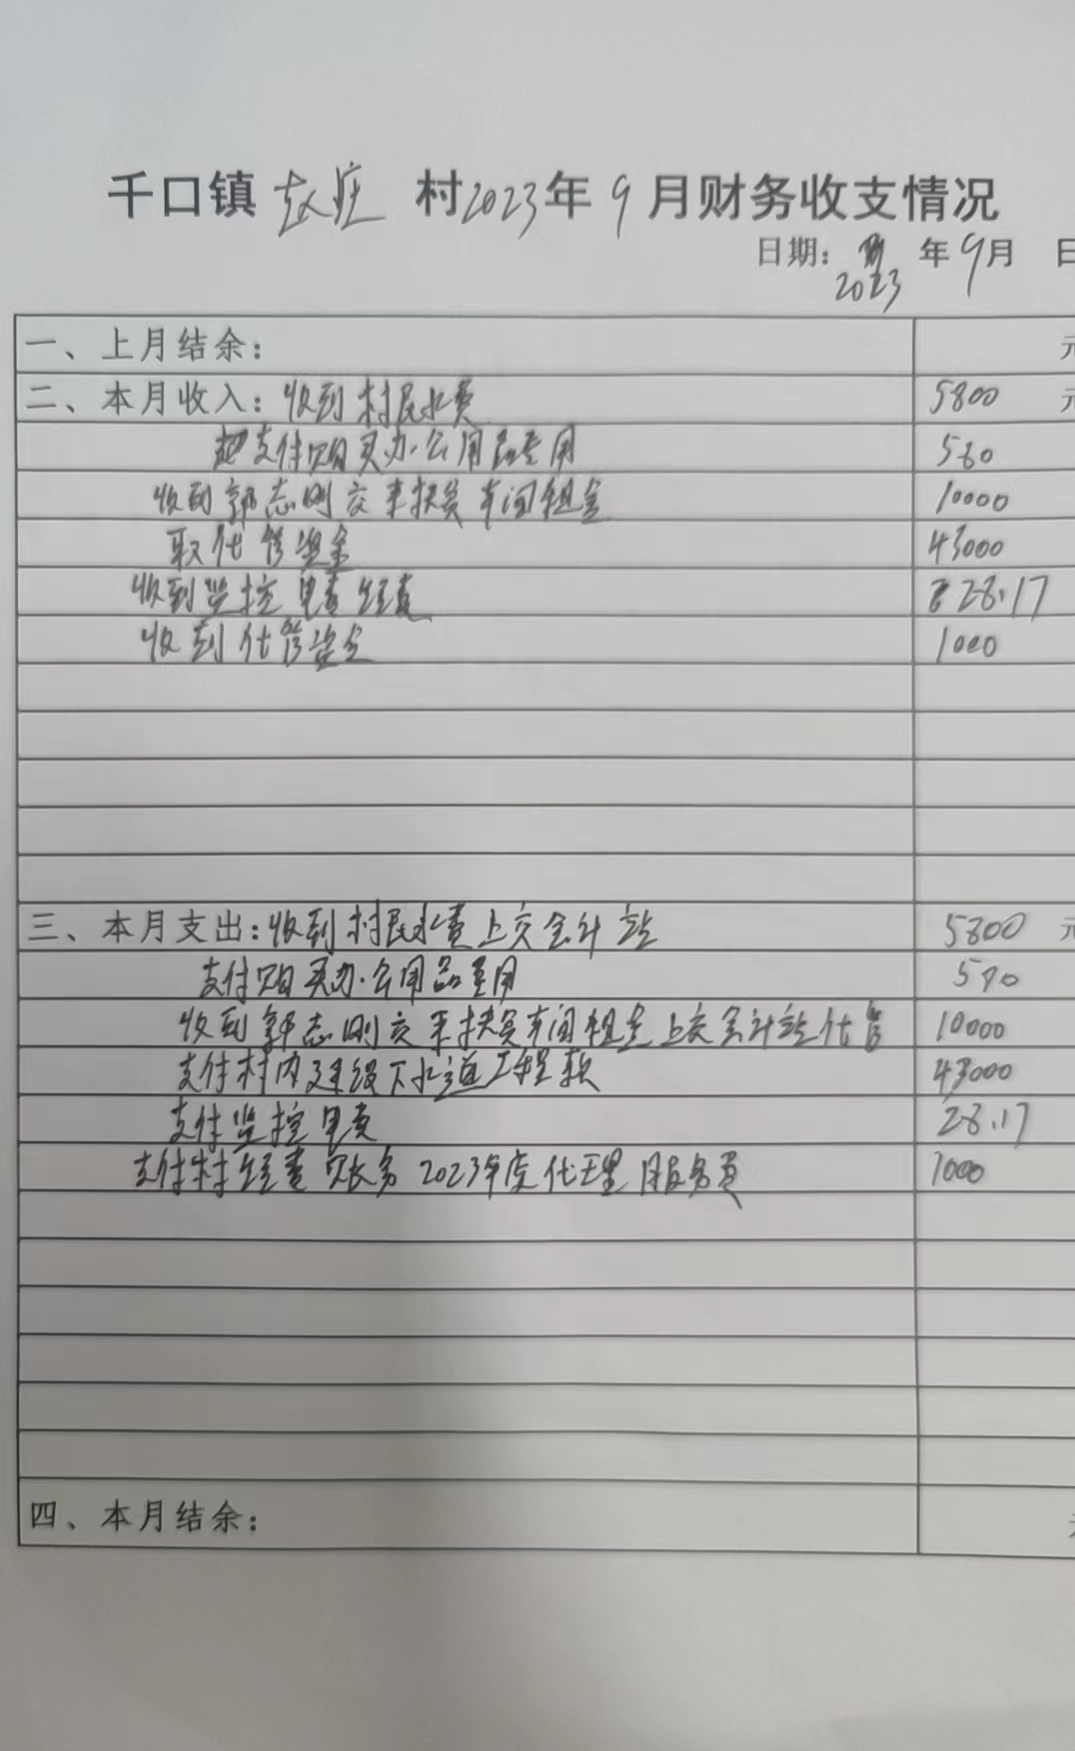 千口镇赵庄 村2023年9月财务收支情况
日期: 2023 年9月 日
一、上月结余: 元
二、本月收入: 收到村民水费 5800 元
支付购买办公用品费用
收到郭志刚交来扶贫车间租金 10000
取代管资金 43000
收到监控电费经费 28.17
收到代管资金 1000
三、本月支出: 收到村民水费上交会计站 5800 元
支付购买办公用品费用
收到郭志刚交来扶贫车间租金上交会计站代管 10000
支付村内建设下水道工程款 43000
支付监控电费 28.17
支付村经费账务2023年度代理服务费 1000
四、本月结余: